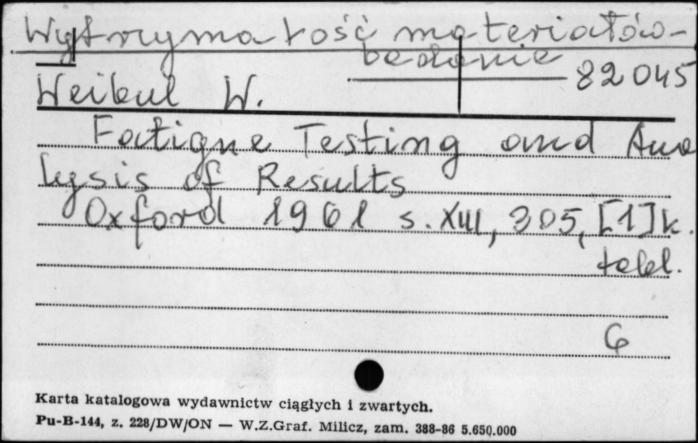 Wytrzymałość materiałów-
badanie
82045
Weibul W.
Fatigue Testing and Ana
lysis of Results
Oxford 1961 s. XIII, 305, [1] k.
tabl.
6
Karta katalogowa wydawnictw ciągłych i zwartych.
Pu-B-144, z. 228/DW/ON — W.Z.Graf. Milicz, zam. 388-86 5.650.000